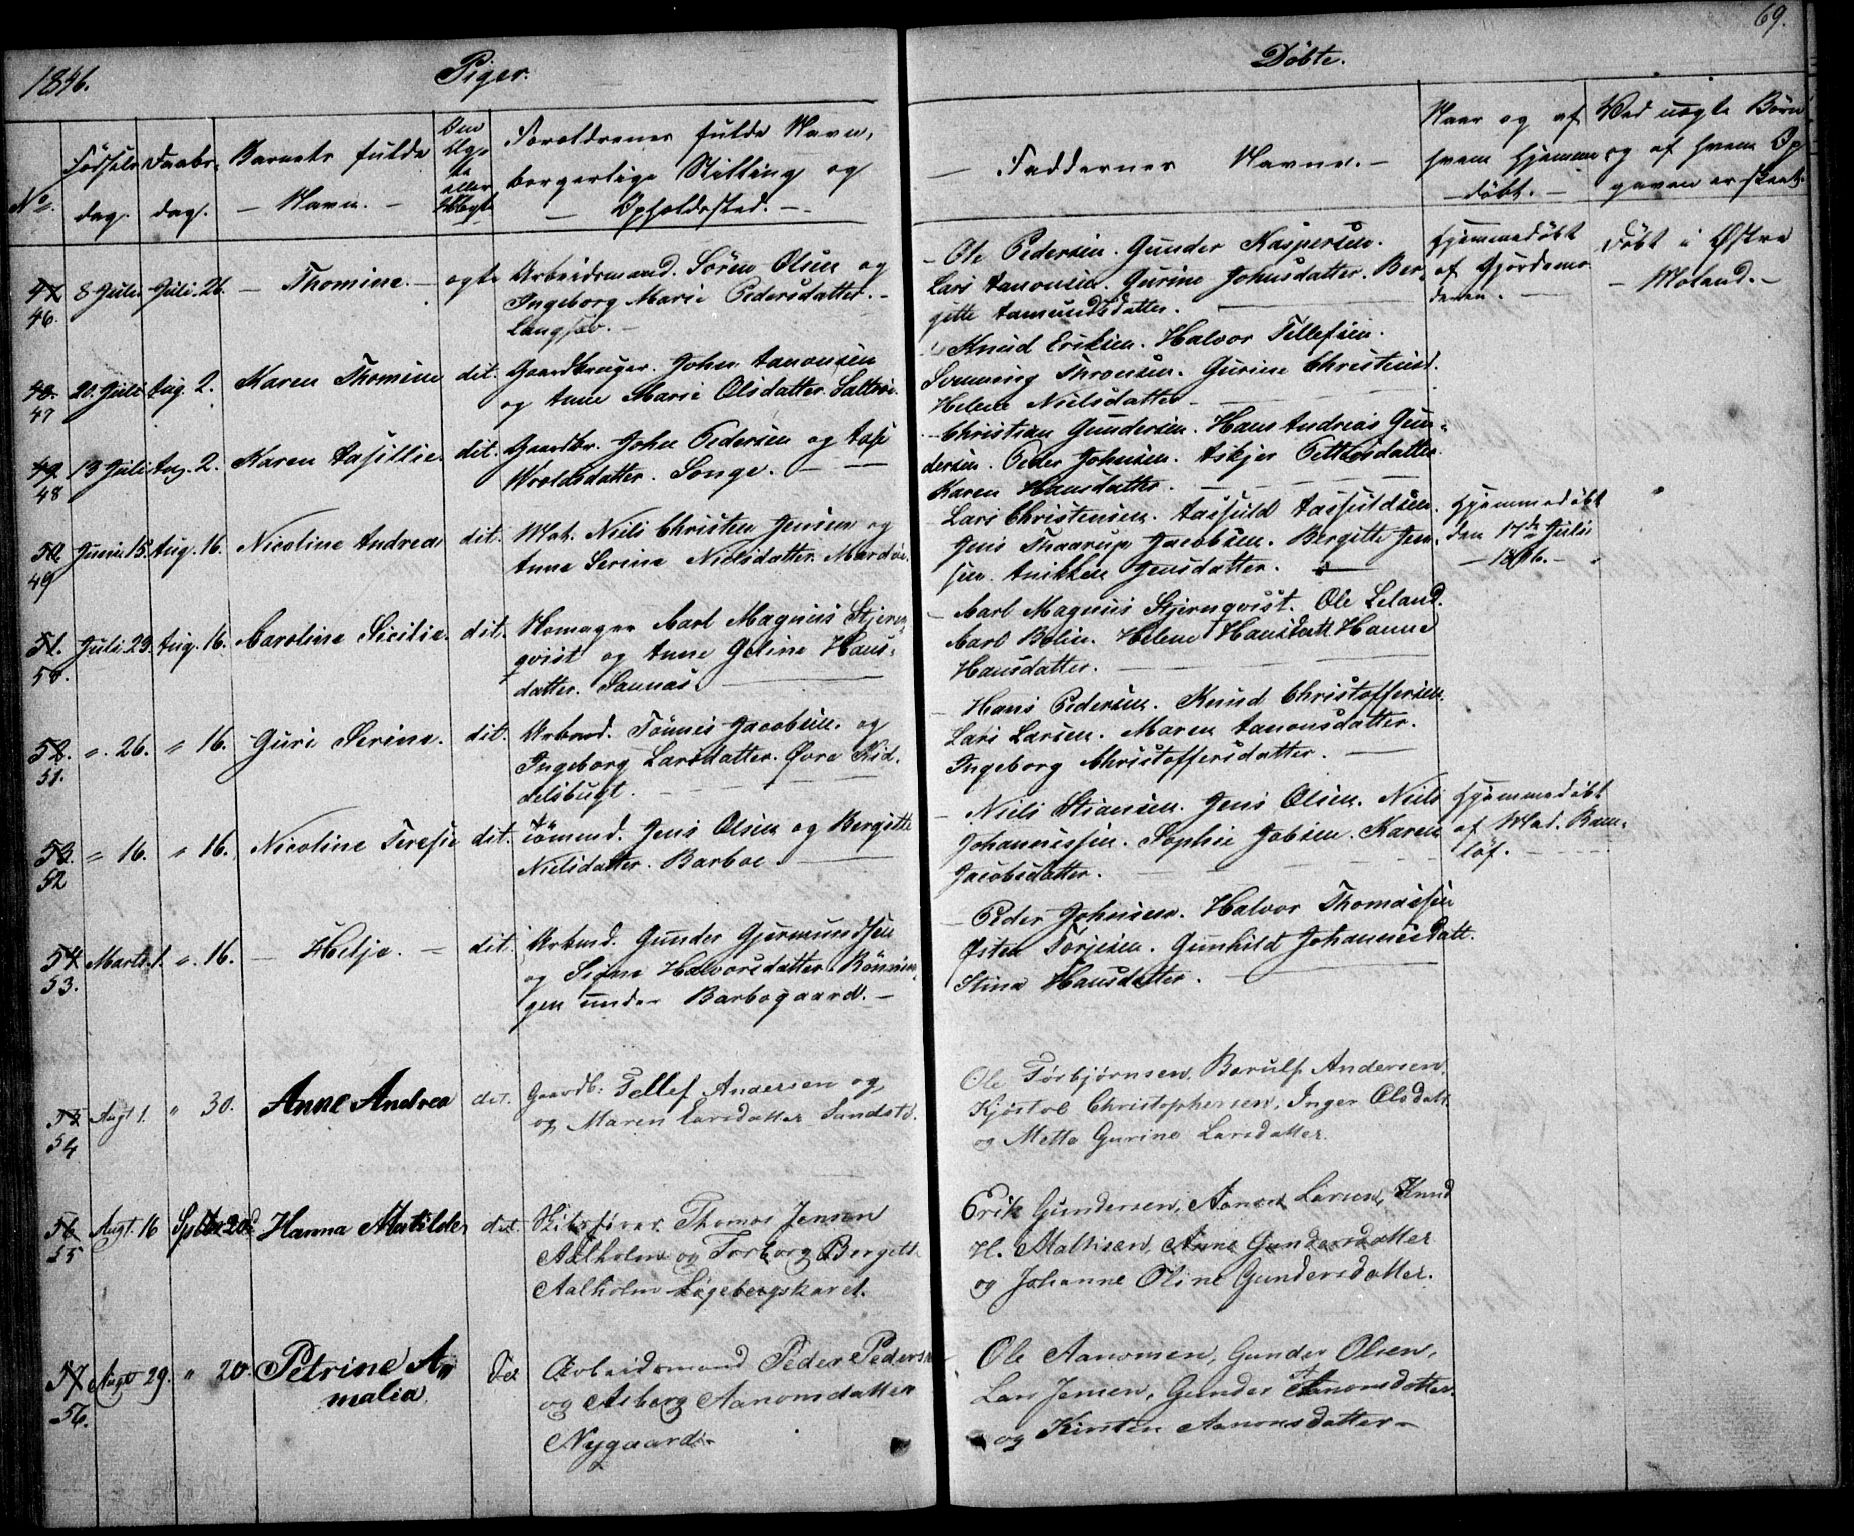 1846.
Piger.
Døbte.
69.
No.
Fødsels
dag.
Daabs-
dag.
Barnets fulde
— Navn. —
Om
Æg-
te
eller
Uægte
Forældrenes fulde Navn,
borgerlige Stilling og
— Opholdssted. —
— Faddernes Navne. —
Naar og af
hvem hjemme
— døbt. —
Ved nogle Børn
og af hvem Op
gaven er skeet.
47
46.
8 Juli
Juli 26.
— Thomine. —
ægte
Arbeidsmand. Sören Olsen og
Ingeborg Marie Pedersdatter. —
Langsæv. —
— Ole Pedersen. Gunder Kaspersen.
Lars Aanonsen. Gurine Johnsdatter. Ber-
gitte Aamundsdatter.
Hjemmedöbt
af Gjordemo
deren. —
Döbt i Østre
— Moland. —
48
47
20. Juli
Aug. 2.
Karen Thomine
dit.
Gaardbruger. John Aanonsen
og Anne Marie Olsdatter. Saltrø.
Knud Eriksen. Halvor Tellefsen.
Svenning Thronsen. Gurine Christensd.
Helene Nielsdatter. —
49
48
13 Juli
Aug. 2.
Karen Aasillie.
dit.
Gaardbr. John Pedersen og Aase
Wroldsdatter. Songe. — —
— Christian Gundersen. Hans Andreas Gun-
dersen. Peder Johnsen. Askjer Pettersdatter.
Karen Hansdatter. —
50
49
Junii 15.
Aug. 16.
Nicoline Andrea
dit.
Mat. Niels Christen Jensen og
Anne Serine Nielsdatter. Mardøe.
Lars Christensen. Aasuld Aasuldsen.
Jens Thaarup Jacobsen. Bergitte Jen-
sen. Anikken Jensdatter. —
Hjemmedöbt
den 17de Julii
— 1846. —
51.
50.
Juli 29.
Aug. 16.
Caroline Sicilie.
dit.
Skomager Carl Magnus Stjern-
qvist og Anne Geline Hans-
datter. Sannæs. —
— Carl Magnus Stjernqvist. Ole Leland.
Carl Bolin. Helene Hansdatt. Hanne
Hansdatter. —
52.
51.
" 26.
" 16.
Guri Serine.
dit.
Arbmd. Tönnes Jacobsen. og
Ingeborg Larsdatter. Øvre Kid-
delsbugt. —
— Hans Pedersen. Knud Christoffersen.
Lars Larsen. Maren Aanonsdatter.
Ingeborg Christoffersdatter. —
53.
52
" 16.
" 16.
Nicoline Teresie
dit.
Tömmd. Jens Olsen og Bergitte
Nielsdatter. Barboe. —
— Niels Stiansen. Jens Olsen. Niels
Johannessen. Sophie Jobsen. Karen
Jacobsdatter. —
Hjemmedöbt
af Mad. Ram-
löf. —
54
53.
Marts 1.
" 16.
— Helje. —
dit.
Arbmd. Gunder Gjermundsen
og Signe Halvorsdatter. Rönnin-
gen under Barbogaard. —
— Peder Johnsen. Halvor Thomassen
Østen Torjesen. Gunhild Johannesdatt.
Stina Hansdatter. —
54
Augt 1.
" 30.
Anne Andrea
det.
Gaardb: Tellef Andersen og
og Maren Larsdatter Sandstø.
Ole Torbjørnsen, Berulf Andersen,
Kjøstol Christophersen, Inger Olsdatt.
og Mette Gurine Larsdatter.
56
55
Augt. 16
Septbr 20d
Hanna Matilde
det
Skibsfører Thomas Jensen
Aalholm og Torborg Bergette
Aalholm Løgebergskaret.
Erik Gundersen, Aanon Larsen, Knud
H. Mathisen, Anne Gundersdatter
og Johanne Oline Gundersdatter.
57
56.
Augt 29.
" 20.
Petrine A-
malia.
Det
Arbeidsmand Peder Peders
og Asberg Aanonsdatter
Nygaard.
Ole Aanonsen, Gunder Olsen,
Lars Jensen, Gunder Aanonsdatter
og Kirsten Aanonsdatter —